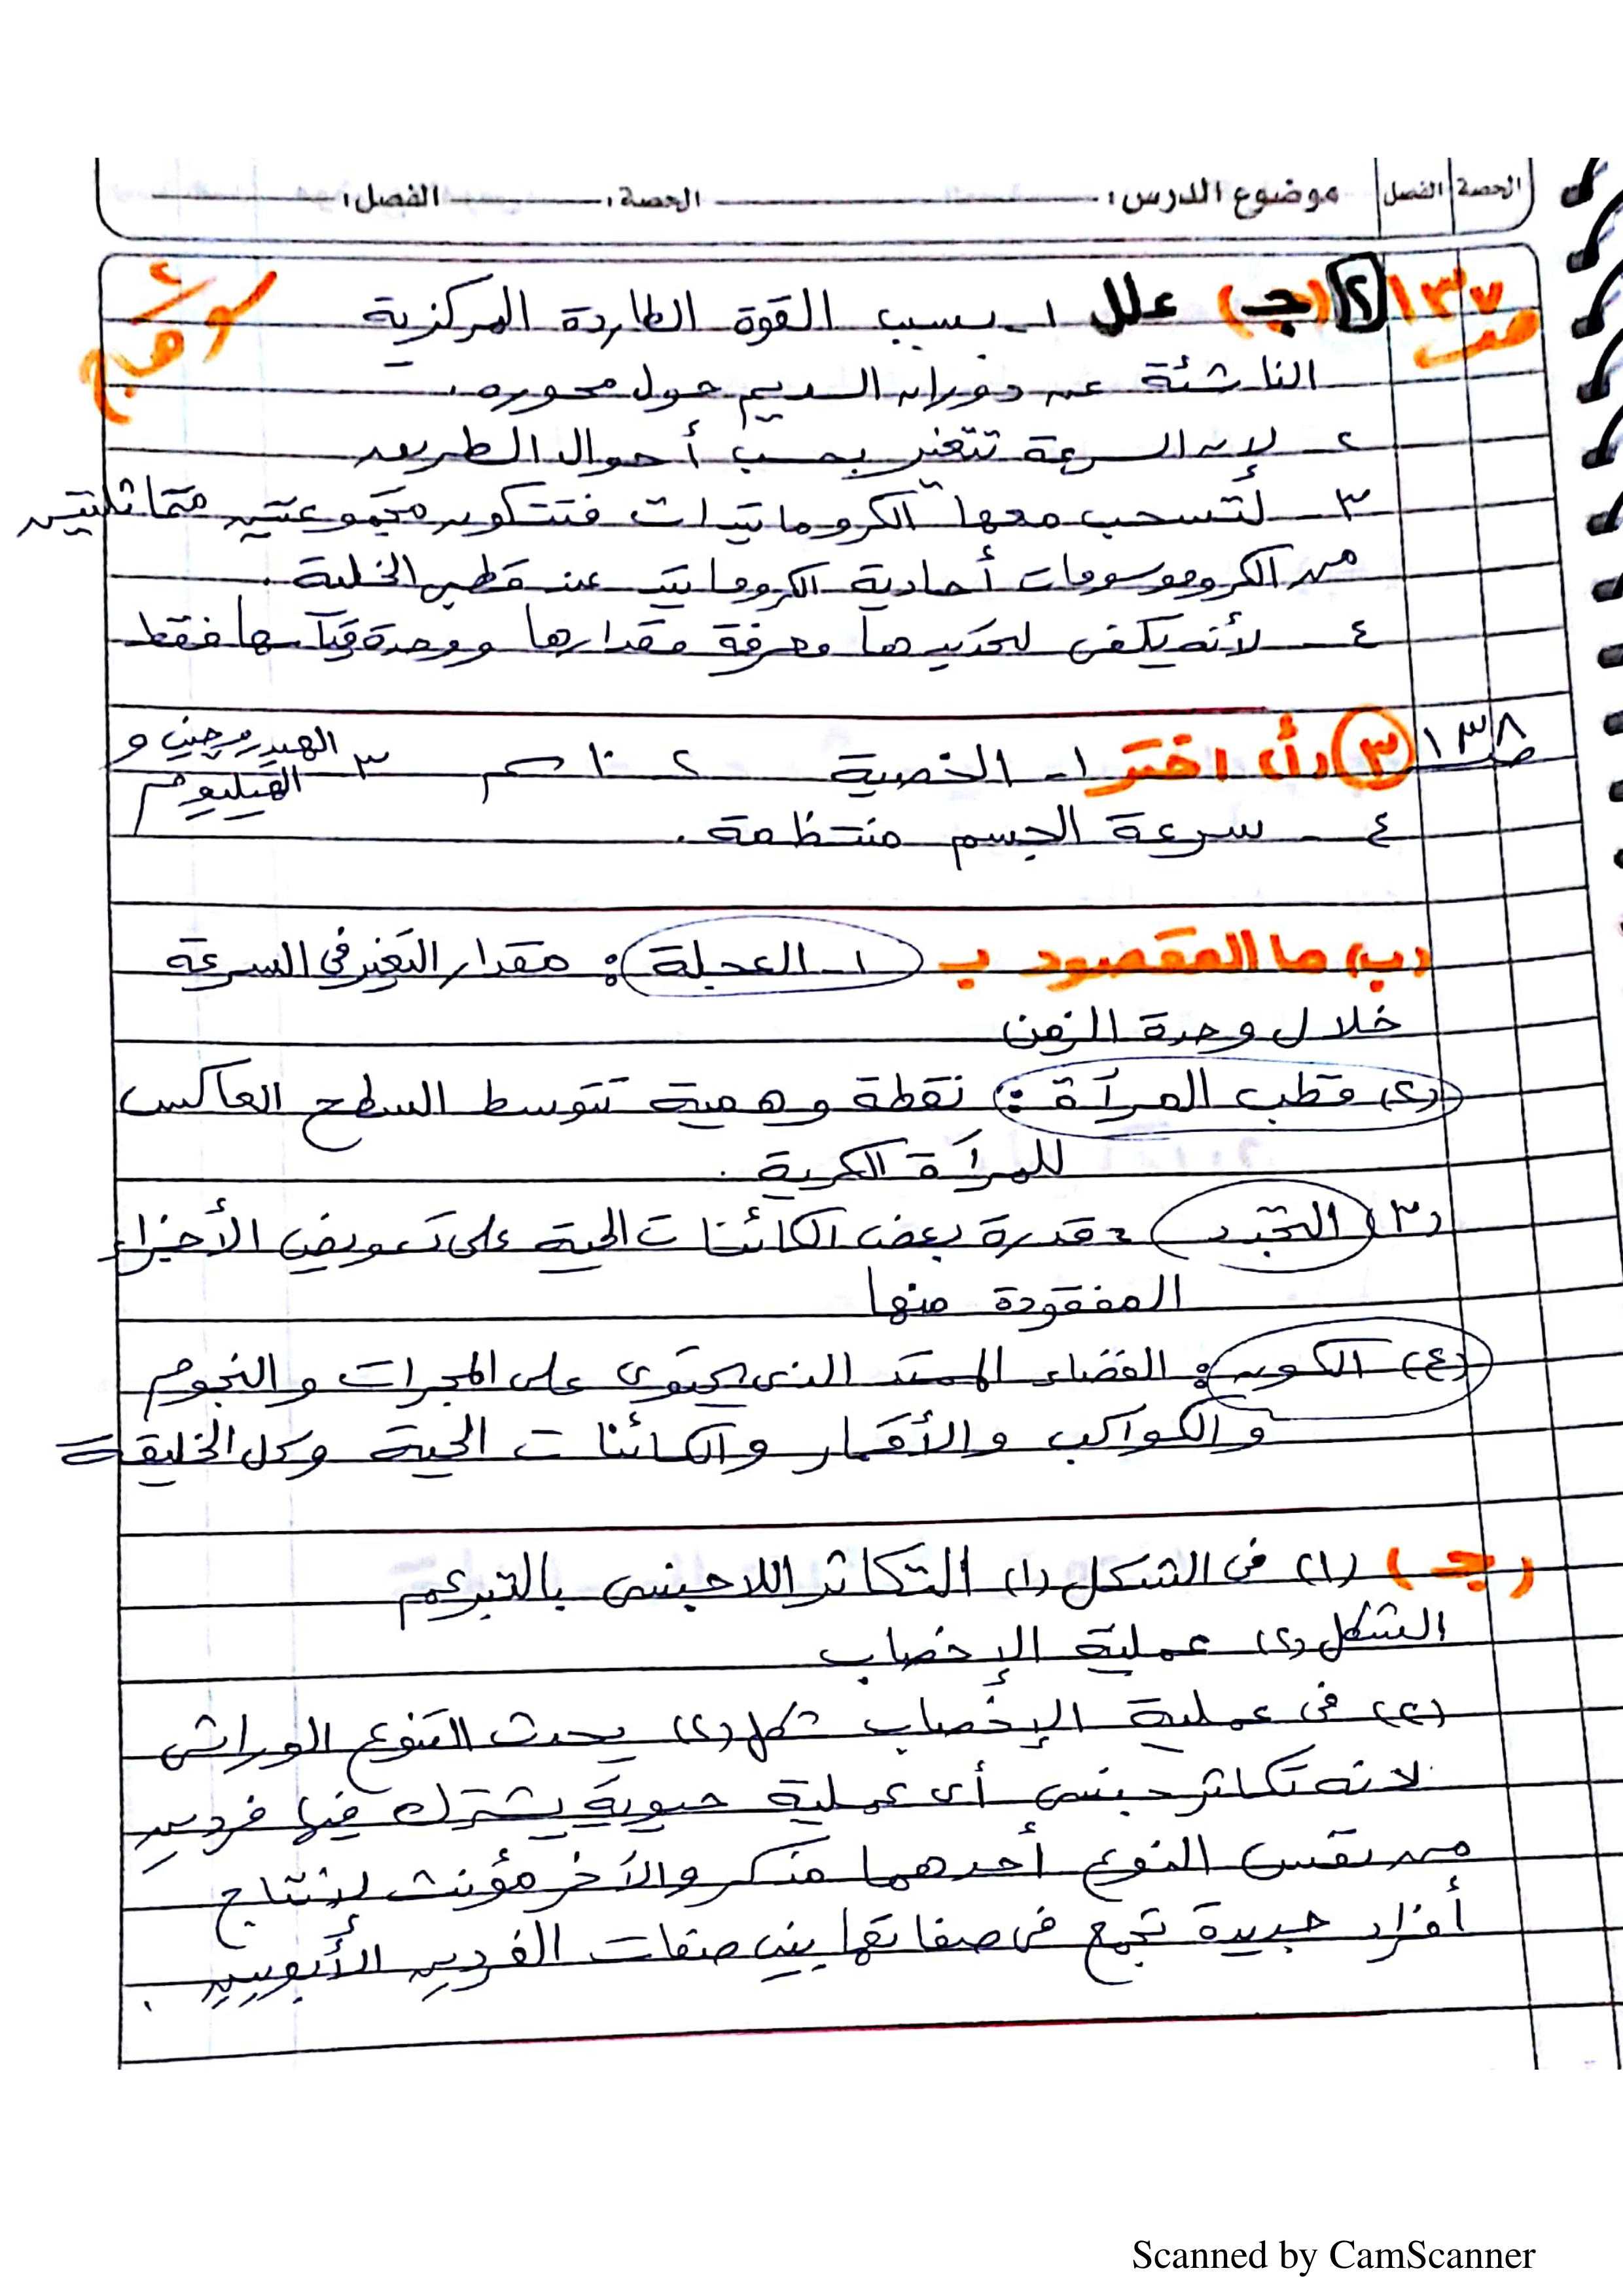 الحصة الفصل موضوع الدرس: الحصة: الفصل:
ص١٣٧ ٢ (جـ) علل ١- بسبب القوة الطاردة المركزية
الناشئة عن دوران السديم حول محوره.
٢- لان السرعة تتغير بحسب أحوال الطريق
٣- لتسحب معها الكروماتيدات فتتكون مجموعتين متماثلتين
من الكروموسومات أحادية الكروماتيد عند قطبى الخلية.
٤- لأنه يكفى لتحديدها معرفة مقدارها ووحدة قياسها فقط
ص١٣٨ ٣ (أ) اختر ١- الخصية ٢- ١٠ سم ٣- الهيدروجين و
الهيليوم
٤- سرعة الجسم منتظمة.
(ب) ما المقصود بـ ١- العجلة: مقدار التغير فى السرعة
خلال وحدة الزمن
(٢) قطب المرآة: نقطة وهمية تتوسط السطح العاكس
للمرآة الكرية.
(٣) التجدد: قدرة بعض الكائنات الحية على تعويض الأجزاء
المفقودة منها
(٤) الكون: الفضاء الممتد الذى يحتوى على المجرات والنجوم
والكواكب والأقمار والكائنات الحية وكل الخليقة
(جـ) (١) فى الشكل (١) التكاثر اللاجنسى بالتبرعم
الشكل (٢) عملية الإخصاب
(٢) فى عملية الإخصاب شكل (٢) يحدث التنوع الوراثى
لانه تكاثر جنسى أى عملية حيوية يشترك فيها فردين
من نفس النوع أحدهما مذكر والآخر مؤنث لإنتاج
أفراد جديدة تجمع فى صفاتها بين صفات الفردين الأبويين.
Scanned by CamScanner